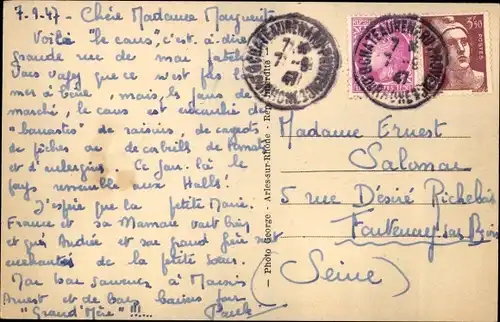 7-9-47 - Chère Madame Marguerite
Voilà "le cours", c'est à dire la
grande rue de mon patelin
Vous voyez que ce n'est pas la
mer à boire, mais, les jours de
marché, le cours est encombré de
"banastes" de raisins, de cageots
de pêches ou de tomates
et d'aubergines. Ce jour là le
pays ressemble aux Halles!
J'espère que la petite Marie
France et sa Maman vont bien
et que Andrée et son grand frère sont
enchantés de la petite sœur.
Mon bon souvenir à
Ernest et de bons baisers pour
"Grand'Mère" !!!... Paule
Photo George - Arles-sur-Rhône - Rep. Interdite
CHATEAURENARD
7-9
47
CHATEAURENARD
7-9
47
3F50
POSTES
Madame Ernest
Salomon
5 rue Désiré Richebois
Fontenay sous Bois
(Seine)